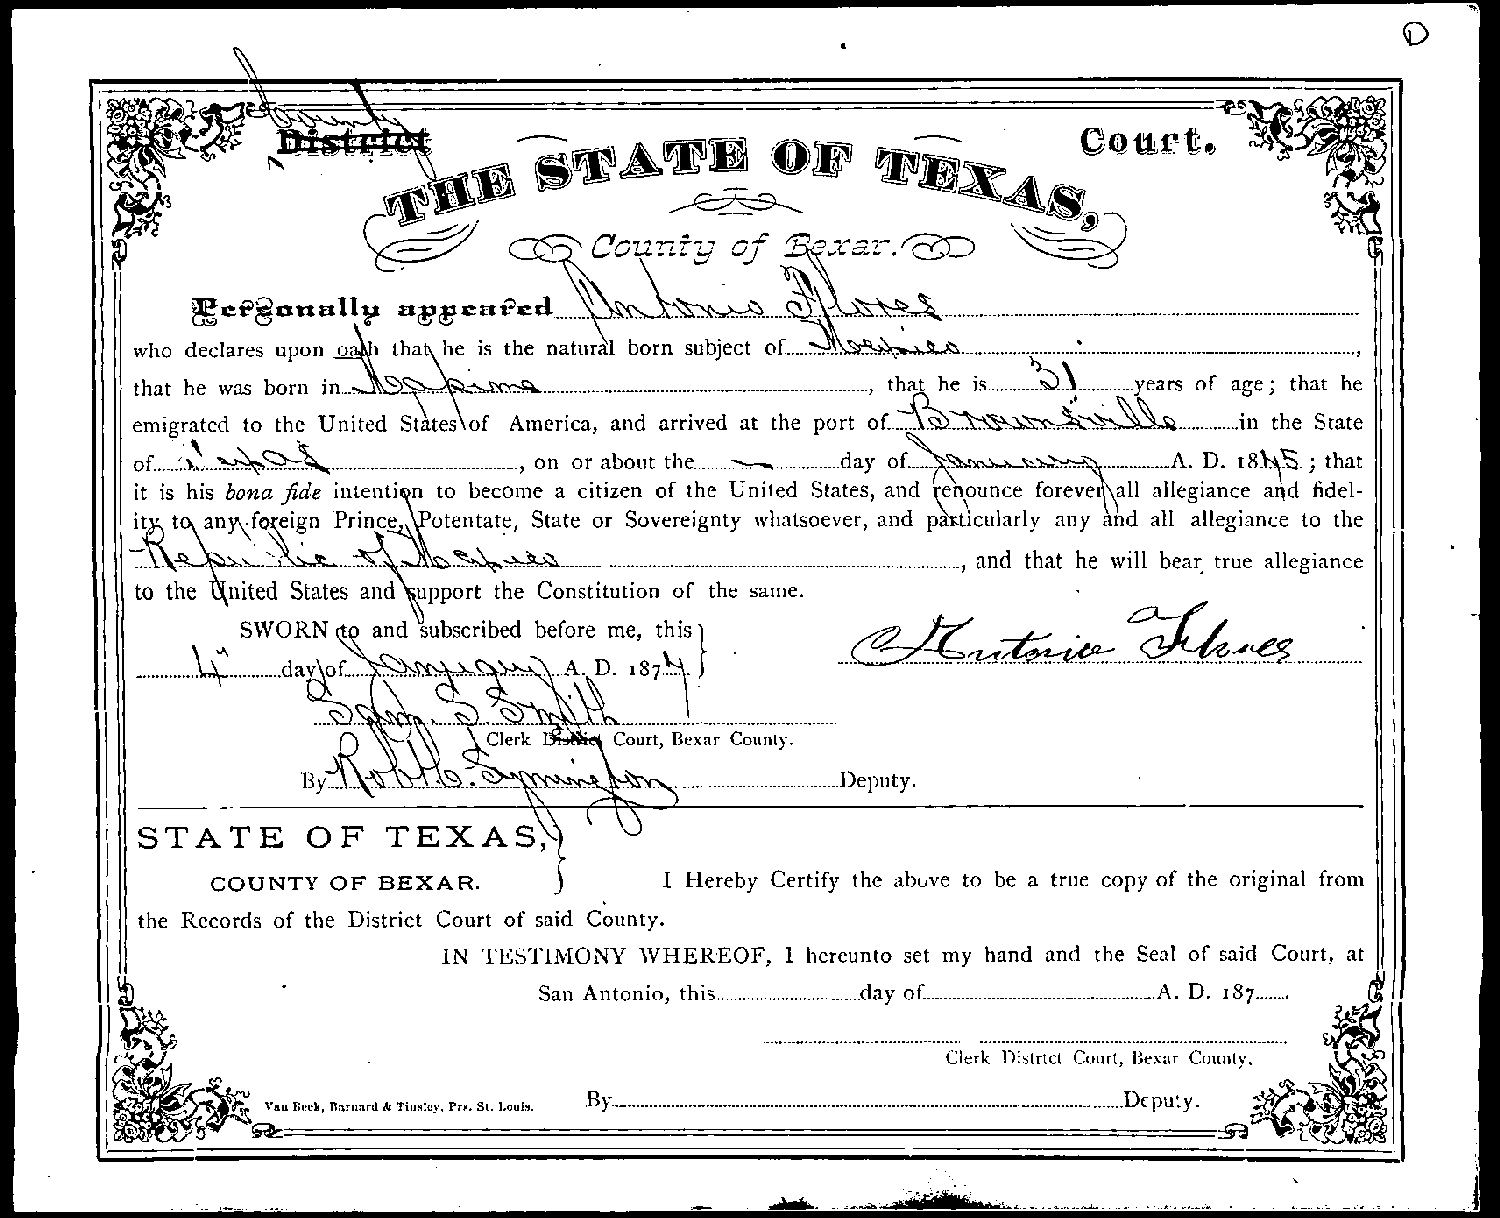 D
County
District Court.
THE STATE OF TEXAS,
County of Bexar.
Personally appeared Antonio Flores
who declares upon oath that he is the natural born subject of Mexico,
that he was born in, that he is 31 years of age; that he
emigrated to the United States of America, and arrived at the port of Brownsville in the State
of Texas, on or about the — day of January A. D. 1845; that
it is his bona fide intention to become a citizen of the United States, and renounce forever all allegiance and fidel-
ity to any foreign Prince, Potentate, State or Sovereignty whatsoever, and particularly any and all allegiance to the
Republic of Mexico, and that he will bear true allegiance
to the United States and support the Constitution of the same.
SWORN to and subscribed before me, this
4" day of January A. D. 1874
Antonio Flores
Sam. S. Smith
Clerk District Court, Bexar County.
By Symington Deputy.
STATE OF TEXAS,
COUNTY OF BEXAR. I Hereby Certify the above to be a true copy of the original from
the Records of the District Court of said County.
IN TESTIMONY WHEREOF, I hereunto set my hand and the Seal of said Court, at
San Antonio, this day of A. D. 187
Clerk District Court, Bexar County.
Van Beek, Barnard & Tinsley, Prs. St. Louis. By Deputy.